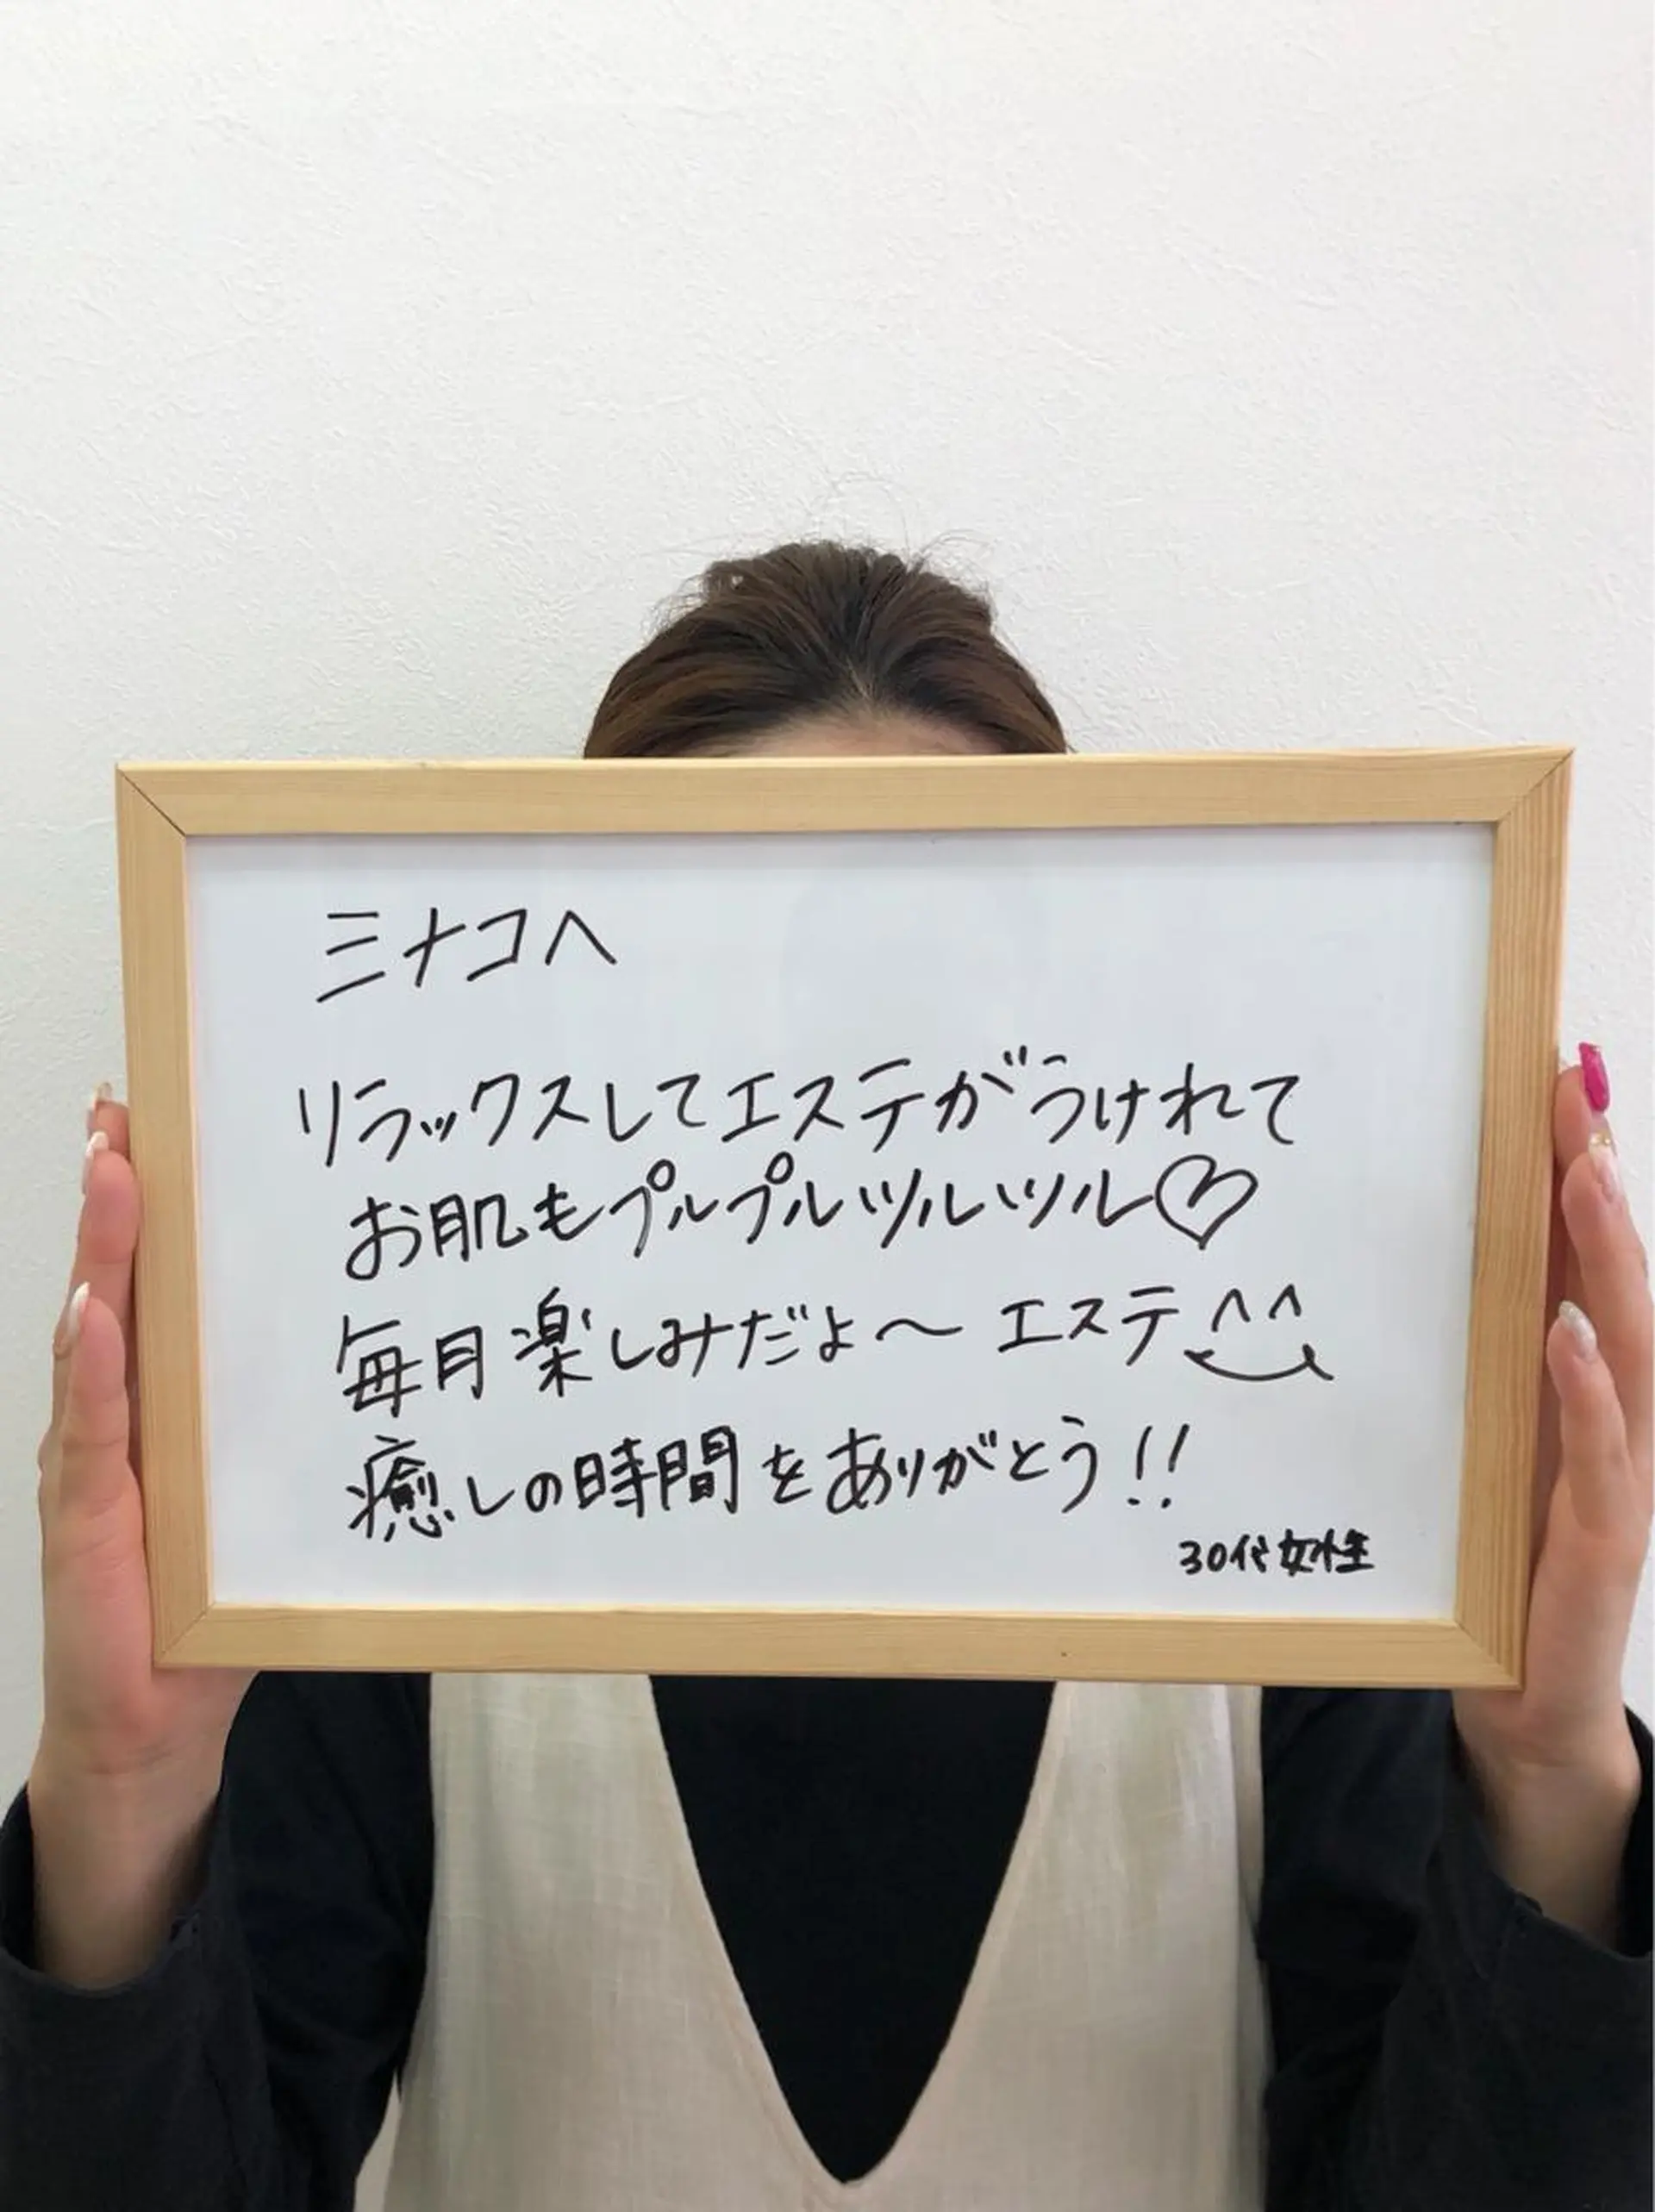 ミナコへ
リラックスしてエステがうけれて
お肌もプルプルツルツル♡
毎月楽しみだよ〜エステ^^
癒しの時間をありがとう!!
30代女性